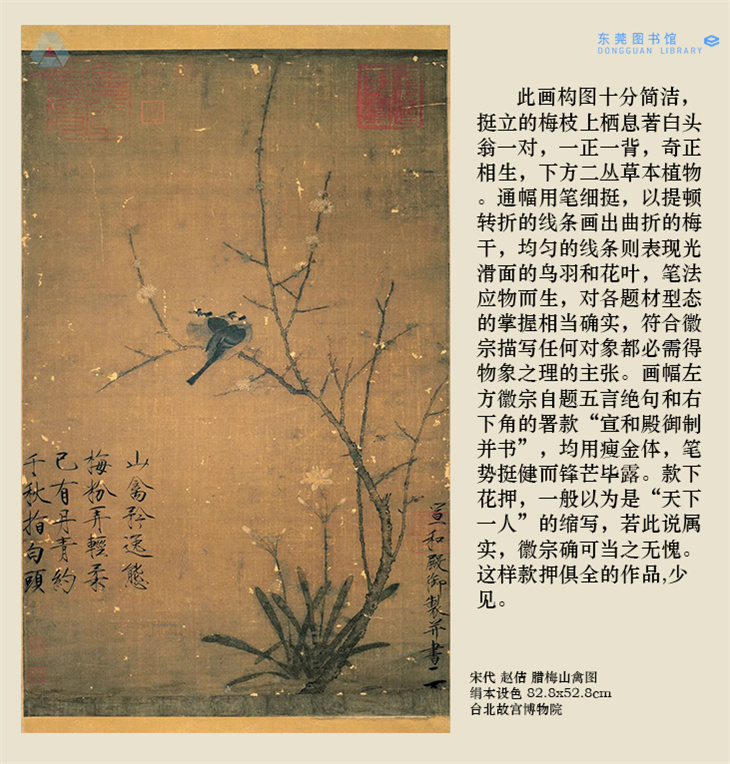 东莞图书馆
DONGGUAN LIBRARY
此画构图十分简洁，
挺立的梅枝上栖息著白头
翁一对，一正一背，奇正
相生，下方二丛草本植物
。通幅用笔细挺，以提顿
转折的线条画出曲折的梅
干，均匀的线条则表现光
滑面的鸟羽和花叶，笔法
应物而生，对各题材型态
的掌握相当确实，符合徽
宗描写任何对象都必需得
物象之理的主张。画幅左
方徽宗自题五言绝句和右
下角的署款“宣和殿御制
并书”，均用瘦金体，笔
势挺健而锋芒毕露。款下
花押，一般以为是“天下
一人”的缩写，若此说属
实，徽宗确可当之无愧。
这样款押俱全的作品,少
见。
山禽矜逸態
梅粉弄輕柔
已有丹青約
千秋指白頭
宣和殿御製并書
宋代 赵佶 腊梅山禽图
绢本设色 82.8x52.8cm
台北故宫博物院